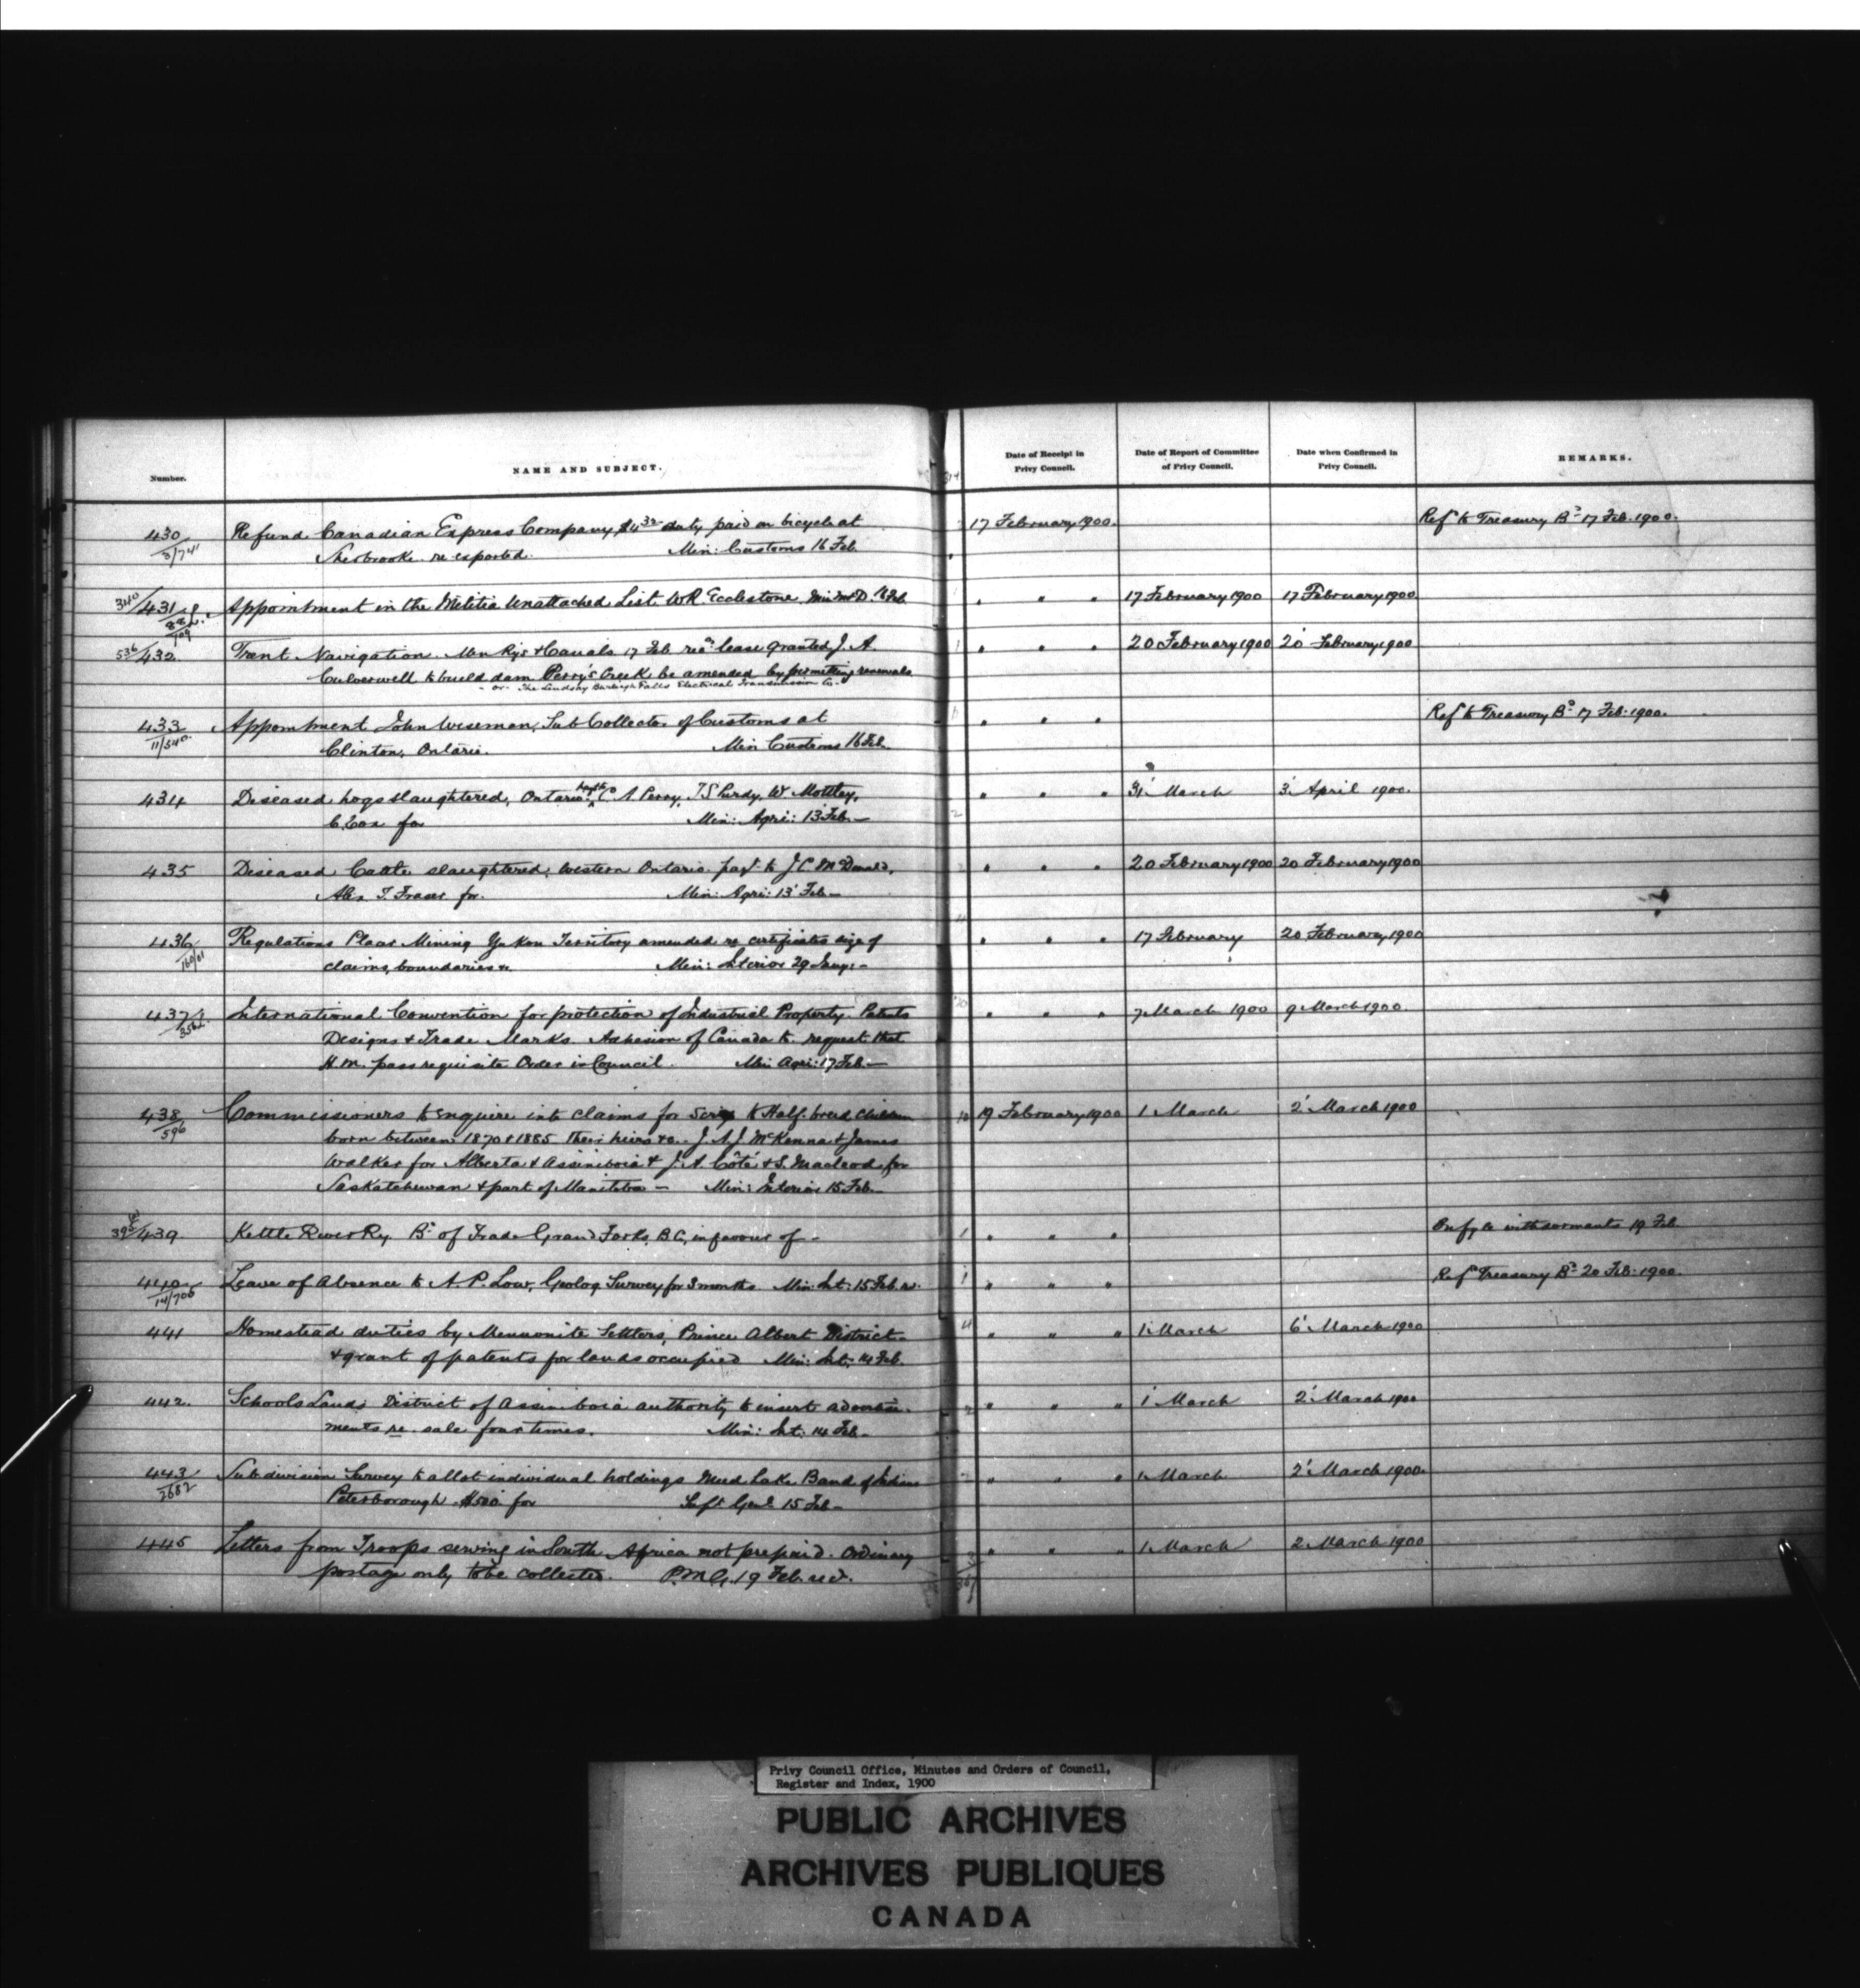 Number.
NAME AND SUBJECT.
Date of Receipt in Privy Council.
Date of Report of Committee of Privy Council.
Date when Confirmed in Privy Council.
REMARKS.
430 Refund Canadian Express Company $4 32 duty paid on bicycle at 17 February 1900. Ref to Treasury Bd 17 Feb. 1900.
Sherbrooke re exported. Min: Customs 16 Feb.
431 Appointment in the Militia Unattached List W.R. Ecclestone Min M&D. Feb. " " " 17 February 1900 17 February 1900
536/432 Trent Navigation. Min Rys & Canals 17 Feb recd lease granted J. A. " " " 20 February 1900 20 February 1900
Culverwell to build dam Perry's Creek be amended by permitting renewals
- or - The Lindsay Burleigh Falls Electrical Transmission Co.
433 Appointment John Wiseman, Sub Collector of Customs at " " " Ref to Treasury Bd 17 Feb. 1900.
11/540
Clinton, Ontario. Min Customs 16 Feb.
434 Diseased hogs slaughtered, Ontario payt to A. Perry, T S Purdy, W Mottley, " " " 31 March 3 April 1900.
C. Cox for Min: Agri: 13 Feb. —
435 Diseased Cattle slaughtered, western Ontario. payt to J C McDonald, " " " 20 February 1900 20 February 1900
Alex T. Fraser for. Min: Agri: 13 Feb —
436 Regulations Placer Mining Yukon Territory amended re certificates size of " " " 17 February 20 February 1900
160/01
claims, boundaries &c. Min: Interior 29 Jany: -
437 International Convention for protection of Industrial Property. Patents " " " 7 March 1900 9 March 1900.
Designs & Trade Marks. Adhesion of Canada to request that
H.M. pass requisite Order in Council. Min Agri: 17 Feb. —
438 Commissioners to enquire into claims for Scrip to Half-breed children 19 February 1900 1 March 2 March 1900
596
born between 1870 & 1885 their heirs &c. J. A. J. McKenna & James
Walker for Alberta & Assiniboia & J. A. Côté & S. Macleod for
Saskatchewan & part of Manitoba — Min: Interior 15 Feb. —
439 Kettle River Ry. Bd of Trade Grand Forks, B.C, in favour of - " " On fyle with dormants 19 Feb
440 Leave of Absence to A. P. Low, Geolog Survey for 3 months Min: Int: 15 Feb. " " " Ref Treasury Bd 20 Feb. 1900.
14/706
441 Homestead duties by Mennonite Settlers, Prince Albert District " " " 1 March 6 March 1900
& grant of patents for lands occupied Min: Int: 14 Feb.
442. Schools Lands District of Assiniboia authority to insert advertise- " " " 1 March 2 March 1900
ments re sale four times. Min: Int: 14 Feb -
443 Subdivision Survey to allot individual holdings Mud Lake Band of Indians " " " 1 March 2 March 1900.
2682
Peterborough $500 for Supt Genl 15 Feb -
445 Letters from Troops serving in South Africa not prepaid. Ordinary " " " 1 March 2 March 1900
postage only to be collected. P.M.G. 19 Feb. recd.
Privy Council Office, Minutes and Orders of Council,
Register and Index, 1900
PUBLIC ARCHIVES
ARCHIVES PUBLIQUES
CANADA